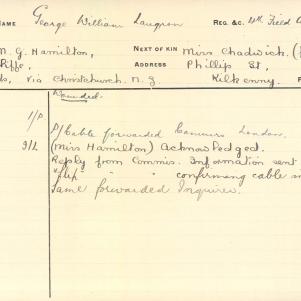 NAME George William REG. &c. 4th Field
N. G. Hamilton, NEXT OF KIN Miss Chadwick. (
ADDRESS Phillip St,
via Christchurch. N.Z Kilkenny.
Wounded.
1/P. P/Cable forwarded London.
(Miss Hamilton) Acknowledged.
Reply from Commis. Information sent
" " confirming cable
Same forwarded Inquirer.